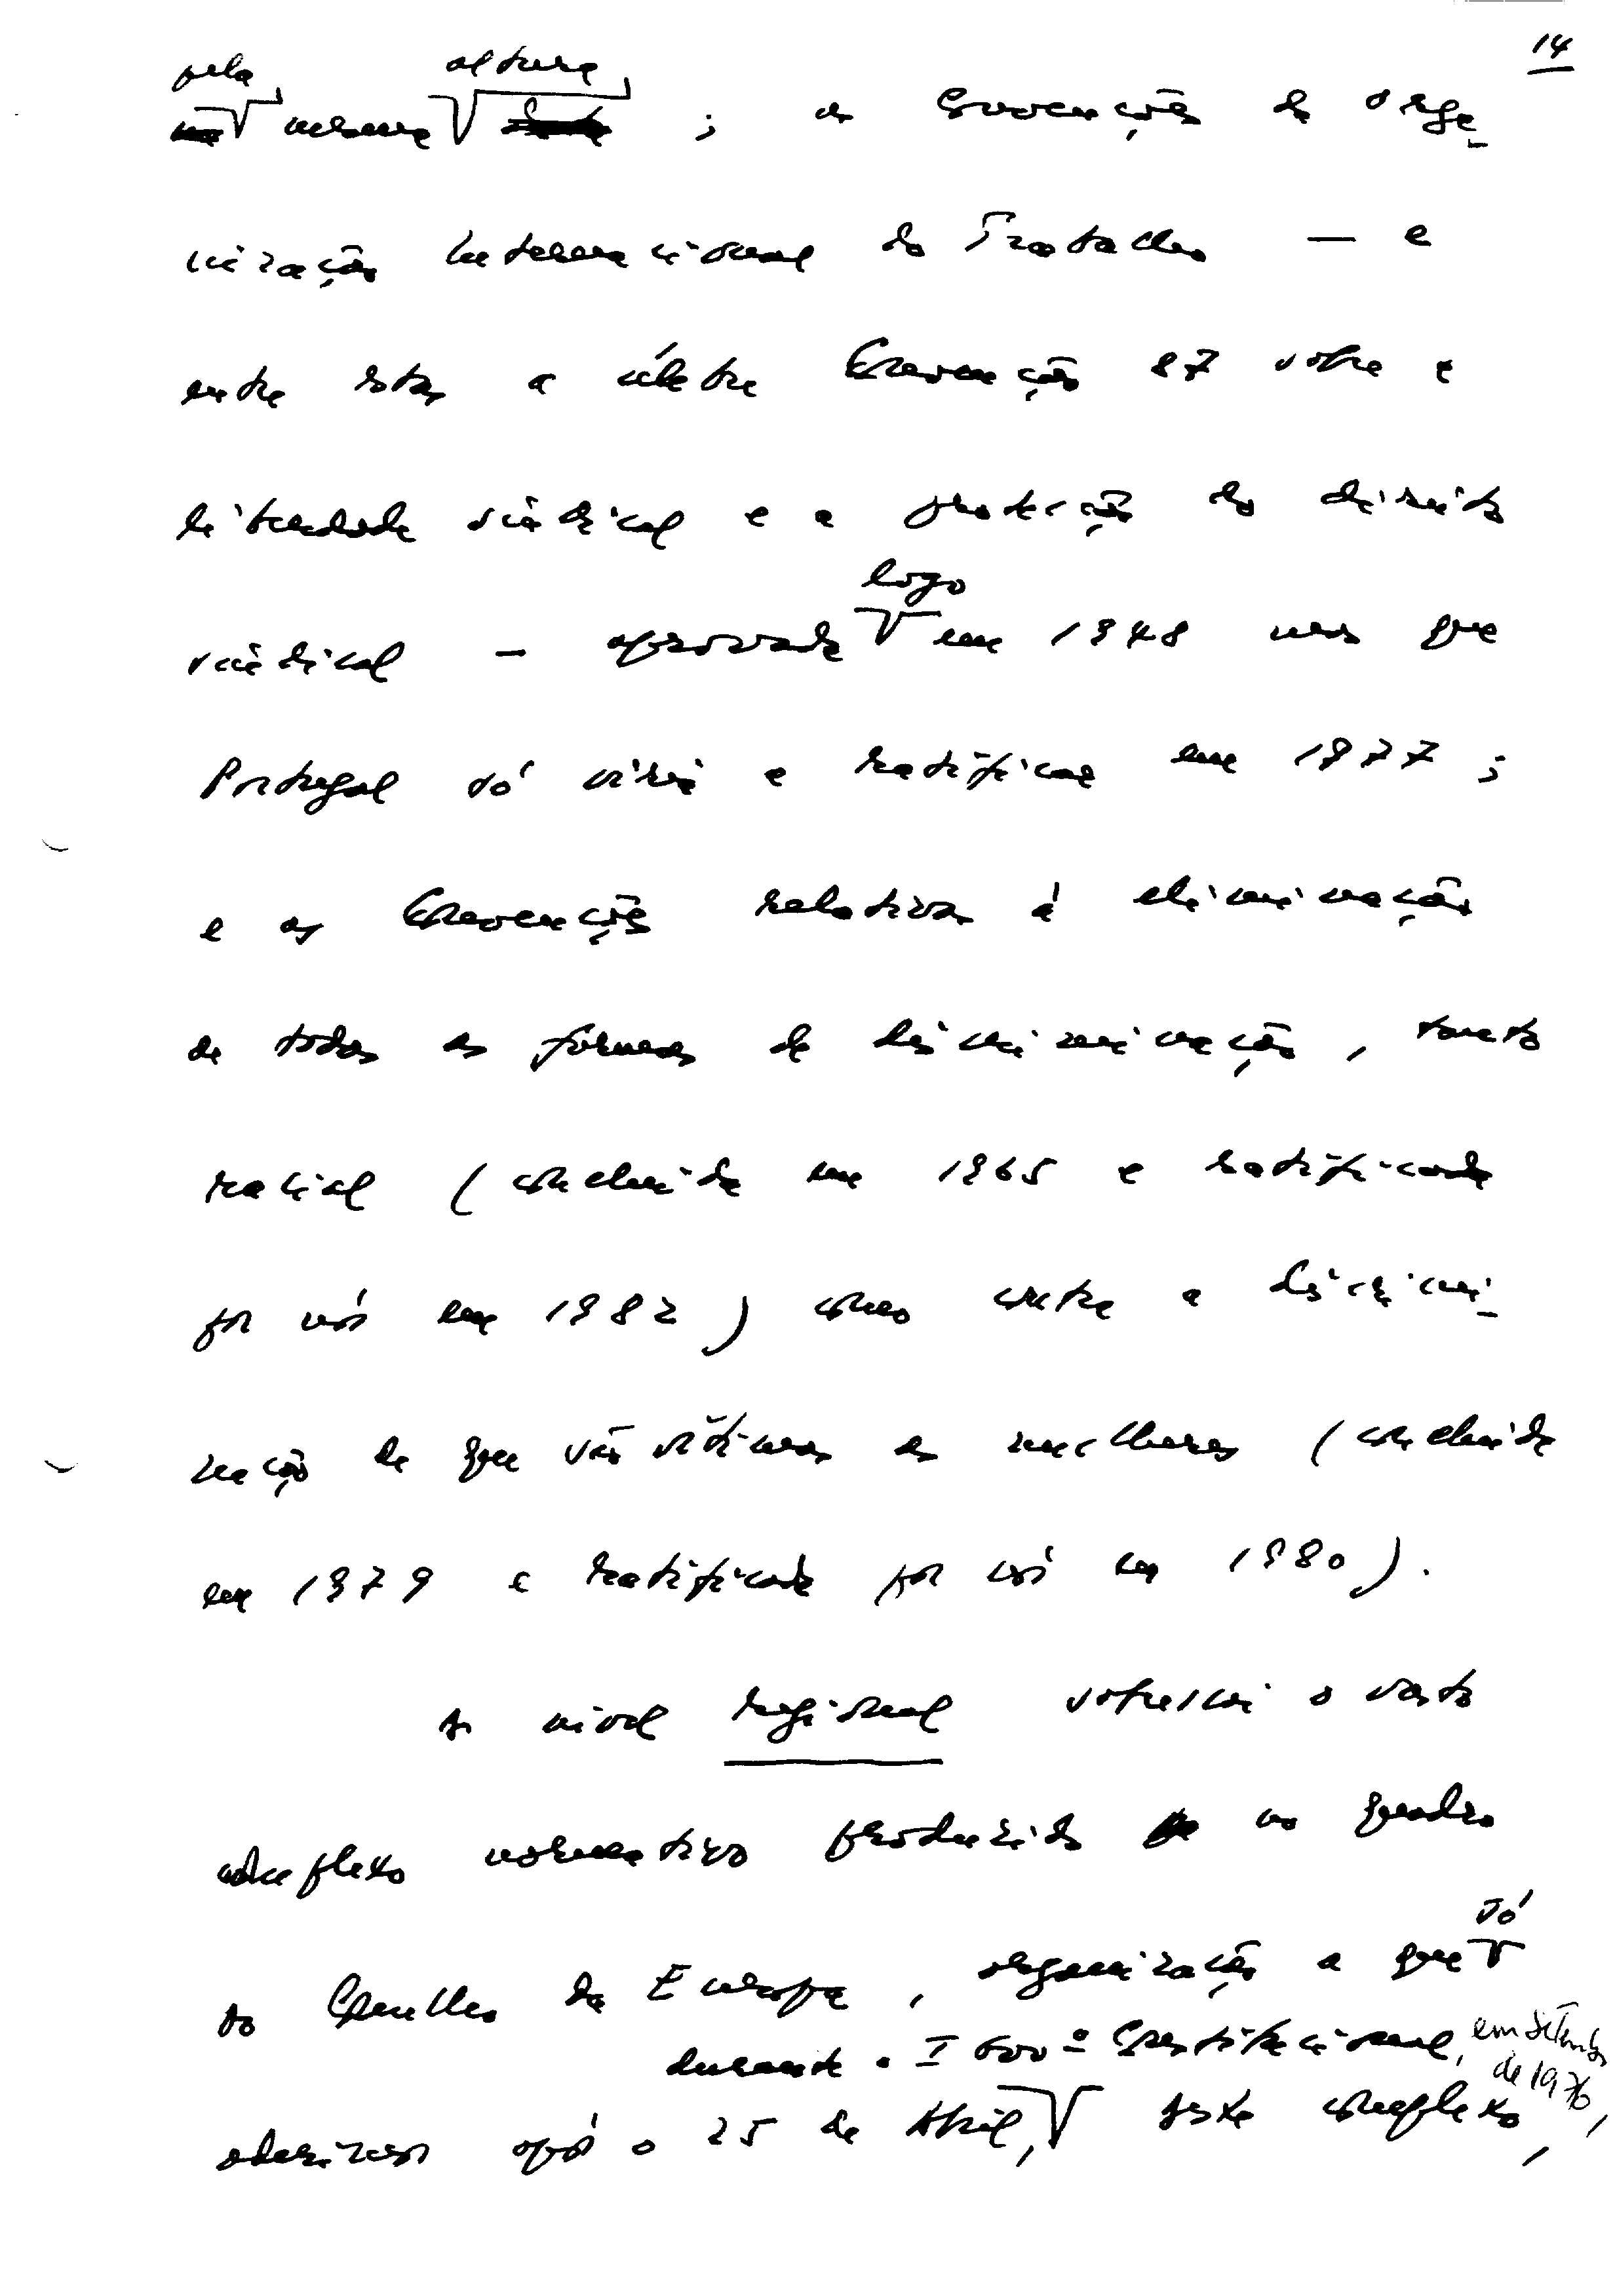 14
pela altura
mesma ; as Convenções da Orga-
nização Internacional do Trabalho — e
entre estas a célebre Convenção 87 sobre a
liberdade sindical e a protecção do direito
logo
sindical — aprovada em 1948 mas que
Portugal só viria a ratificar em 1977 ;
e as Convenções relativas à eliminação
de todas as formas de discriminação , tanto
racial ( concluída em 1965 e ratificada
por nós em 1982 ) como contra a discrimi-
nação de que são vítimas as mulheres ( concluída
em 1979 e ratificada por nós em 1980 ) .
A nível regional sobressai o vasto
complexo normativo produzido no quadro
só
do Conselho da Europa , organização a que
durante o I Govº Constitucional, em Setembro
de 1976,
aderimos após o 25 de Abril, Este complexo,